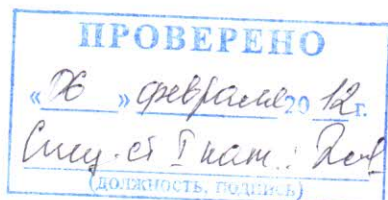 ПРОВЕРЕНО
«06» февраля 2012 г.
Спец-ст I кат.:
(ДОЛЖНОСТЬ, ПОДПИСЬ)